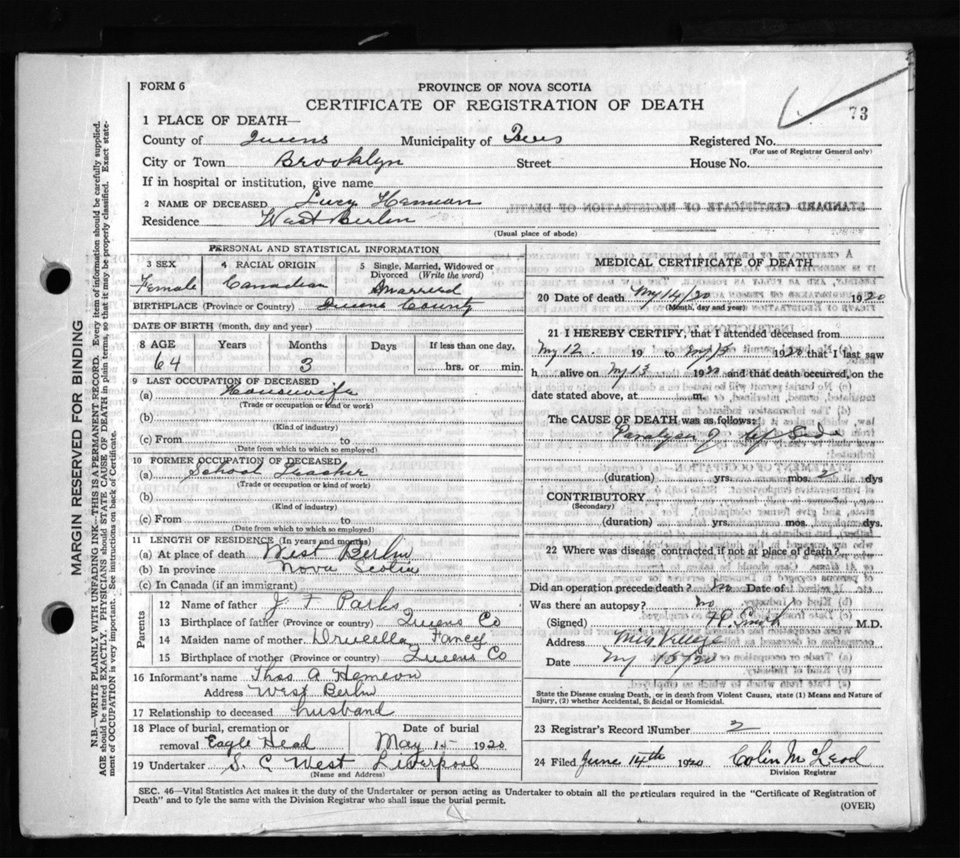 FORM 6
PROVINCE OF NOVA SCOTIA
CERTIFICATE OF REGISTRATION OF DEATH
73
1 PLACE OF DEATH—
County of Queens Municipality of Registered No.
(For use of Registrar General only)
City or Town Brooklyn Street House No.
If in hospital or institution, give name
2 NAME OF DECEASED Lucy Hemeon
Residence West Berlin
(Usual place of abode)
MARGIN RESERVED FOR BINDING
N.B.—WRITE PLAINLY WITH UNFADING INK—THIS IS A PERMANENT RECORD. Every item of information should be carefully supplied.
AGE should be stated EXACTLY. PHYSICIANS should STATE CAUSE OF DEATH in plain terms, so that it may be properly classified. Exact state-
ment of OCCUPATION is very important. See instructions on back of Certificate.
PERSONAL AND STATISTICAL INFORMATION
3 SEX
Female
4 RACIAL ORIGIN
Canadian
5 Single, Married, Widowed or
Divorced (Write the word)
Married
BIRTHPLACE (Province or Country) Queens County
DATE OF BIRTH (month, day and year)
8 AGE Years Months Days If less than one day,
64 3 hrs. or min.
9 LAST OCCUPATION OF DECEASED
(a) Housewife
(Trade or occupation or kind or work)
(b)
(Kind of industry)
(c) From to
(Date from which to which so employed)
10 FORMER OCCUPATION OF DECEASED
(a) School Teacher
(Trade or occupation or kind of work)
(b)
(Kind of industry)
(c) From to
(Date from which to which so employed)
11 LENGTH OF RESIDENCE (In years and months)
(a) At place of death West Berlin
(b) In province Nova Scotia
(c) In Canada (if an immigrant)
Parents
12 Name of father J F Parks
13 Birthplace of father (Province or country) Queens Co
14 Maiden name of mother Drucella Fancy
15 Birthplace of mother (Province or country) Queens Co
16 Informant's name Thos A Hemeon
Address West Berlin
17 Relationship to deceased husband
18 Place of burial, cremation or Date of burial
removal Eagle Head May 15 1920
19 Undertaker S. C West Liverpool
(Name and Address)
MEDICAL CERTIFICATE OF DEATH
20 Date of death My 14/20 1920
(Month, day and year)
21 I HEREBY CERTIFY, that I attended deceased from
My 12 19 to 1920 that I last saw
h alive on My 13 1920 and that death occurred, on the
date stated above, at m.
The CAUSE OF DEATH was as follows:
(duration) yrs. mos. 2 dys
CONTRIBUTORY
(Secondary)
(duration) yrs. mos. dys.
22 Where was disease contracted if not at place of death?
Did an operation precede death? no Date of
Was there an autopsy? no
(Signed) Smith M.D.
Address
Date My 15/20
State the Disease causing Death, or in death from Violent Causes, state (1) Means and Nature of
Injury, (2) whether Accidental, Suicidal or Homicidal.
23 Registrar's Record Number 2
24 Filed June 14th 1920 Colin McLeod
Division Registrar
SEC. 46—Vital Statistics Act makes it the duty of the Undertaker or person acting as Undertaker to obtain all the particulars required in the "Certificate of Registration of
Death" and to fyle the same with the Division Registrar who shall issue the burial permit.
(OVER)